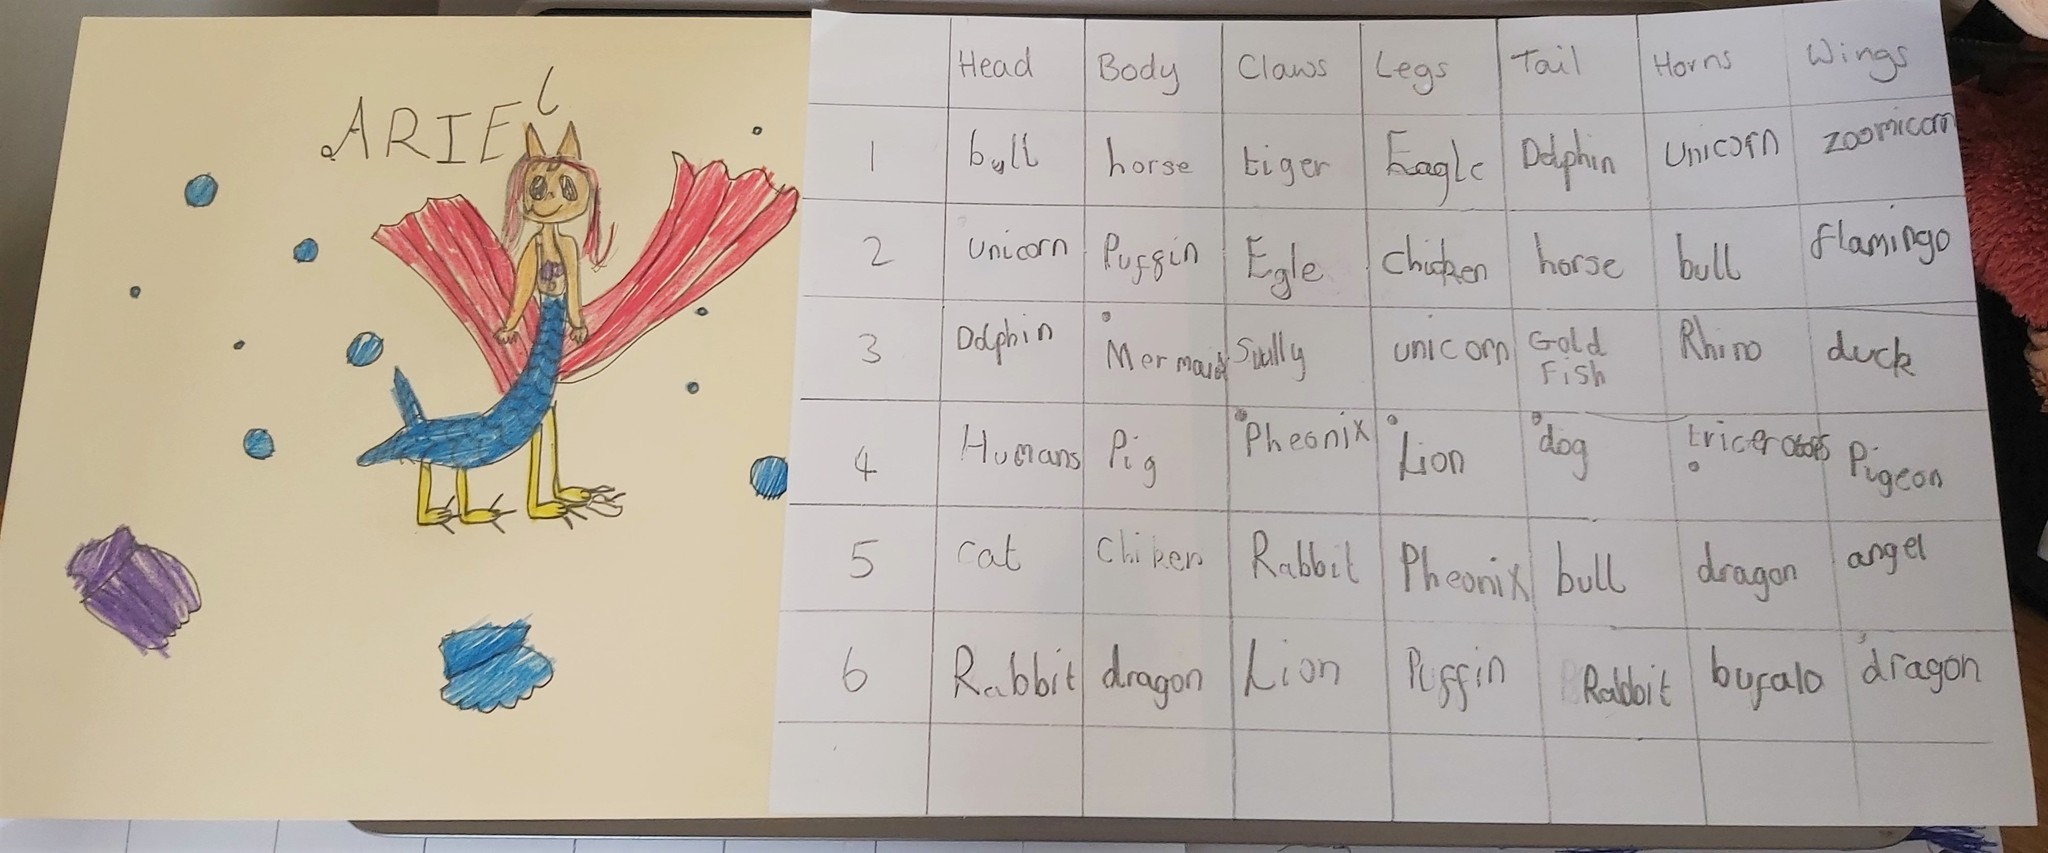 ARIEL
Head Body Claws Legs Tail Horns Wings
1 bull horse tiger Eagle Dolphin Unicorn zoomicorn
2 unicorn Puffin Egle chicken horse bull flamingo
3 Dolphin Mermaid Sully unicorn Gold Fish Rhino duck
4 Humans Pig Pheonix Lion dog Pigeon
5 cat Chiken Rabbit Pheonix bull dragon angel
6 Rabbit dragon Lion Puffin Rabbit bufalo dragon